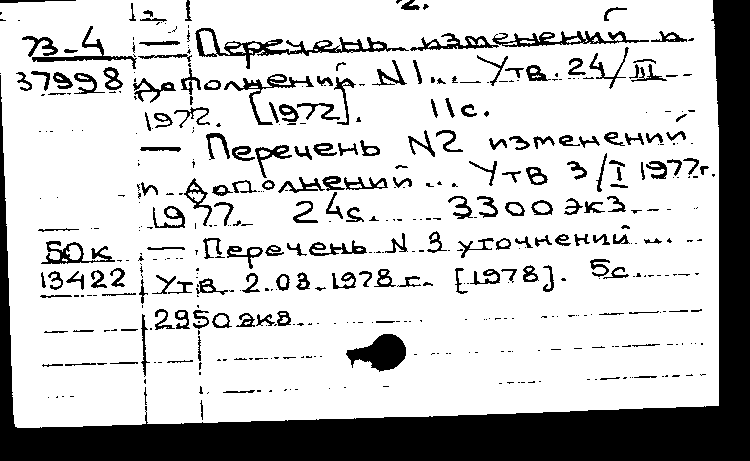 2.
73-4 — Перечень изменений и
37998 дополнений N1... Утв. 24/III
1972. [1972]. 11с.
— Перечень N2 изменений
и дополнений... Утв 3/I 1977г.
1977. 24с. 3300 экз.
50к — Перечень N 3 уточнений ...
13422 Утв. 2.03.1978 г. [1978]. 5с.
2950 экз.